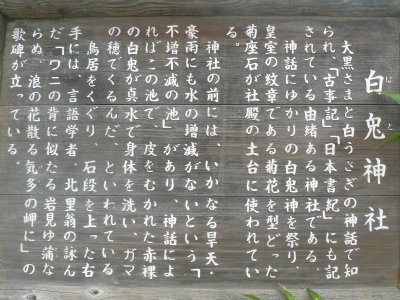 白兎神社
大黒さまと白うさぎの神話で知
られ、「古事記」「日本書記」にも記
されている由緒ある神社である。
神話にゆかりの白兎神を祭り、
皇室の紋章である菊花を型どった
菊座石が社殿の土台に使われてい
る。
神社の前には、いかなる旱天・
豪雨にも水の増減がないという「
不増不減の池」があり、神話によ
ればこの池で、皮をむかれた赤裸
の白兎が真水で身体を洗い、ガマ
の穂でくるんだ、といわれている
鳥居をくぐり、石段を上った右
手には、言語学者、北里翁の詠ん
だ「ワニの背に似たる岩見ゆ蒲な
らぬ、浪の花散る気多の岬に」の
歌碑が立っている。